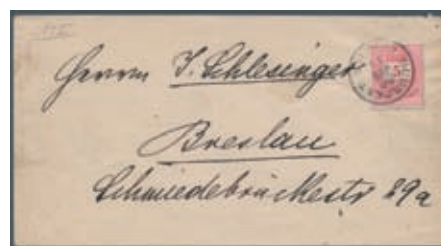 Herrn J. Schlesinger
Breslau
Schmiedebrückestr 29a
5